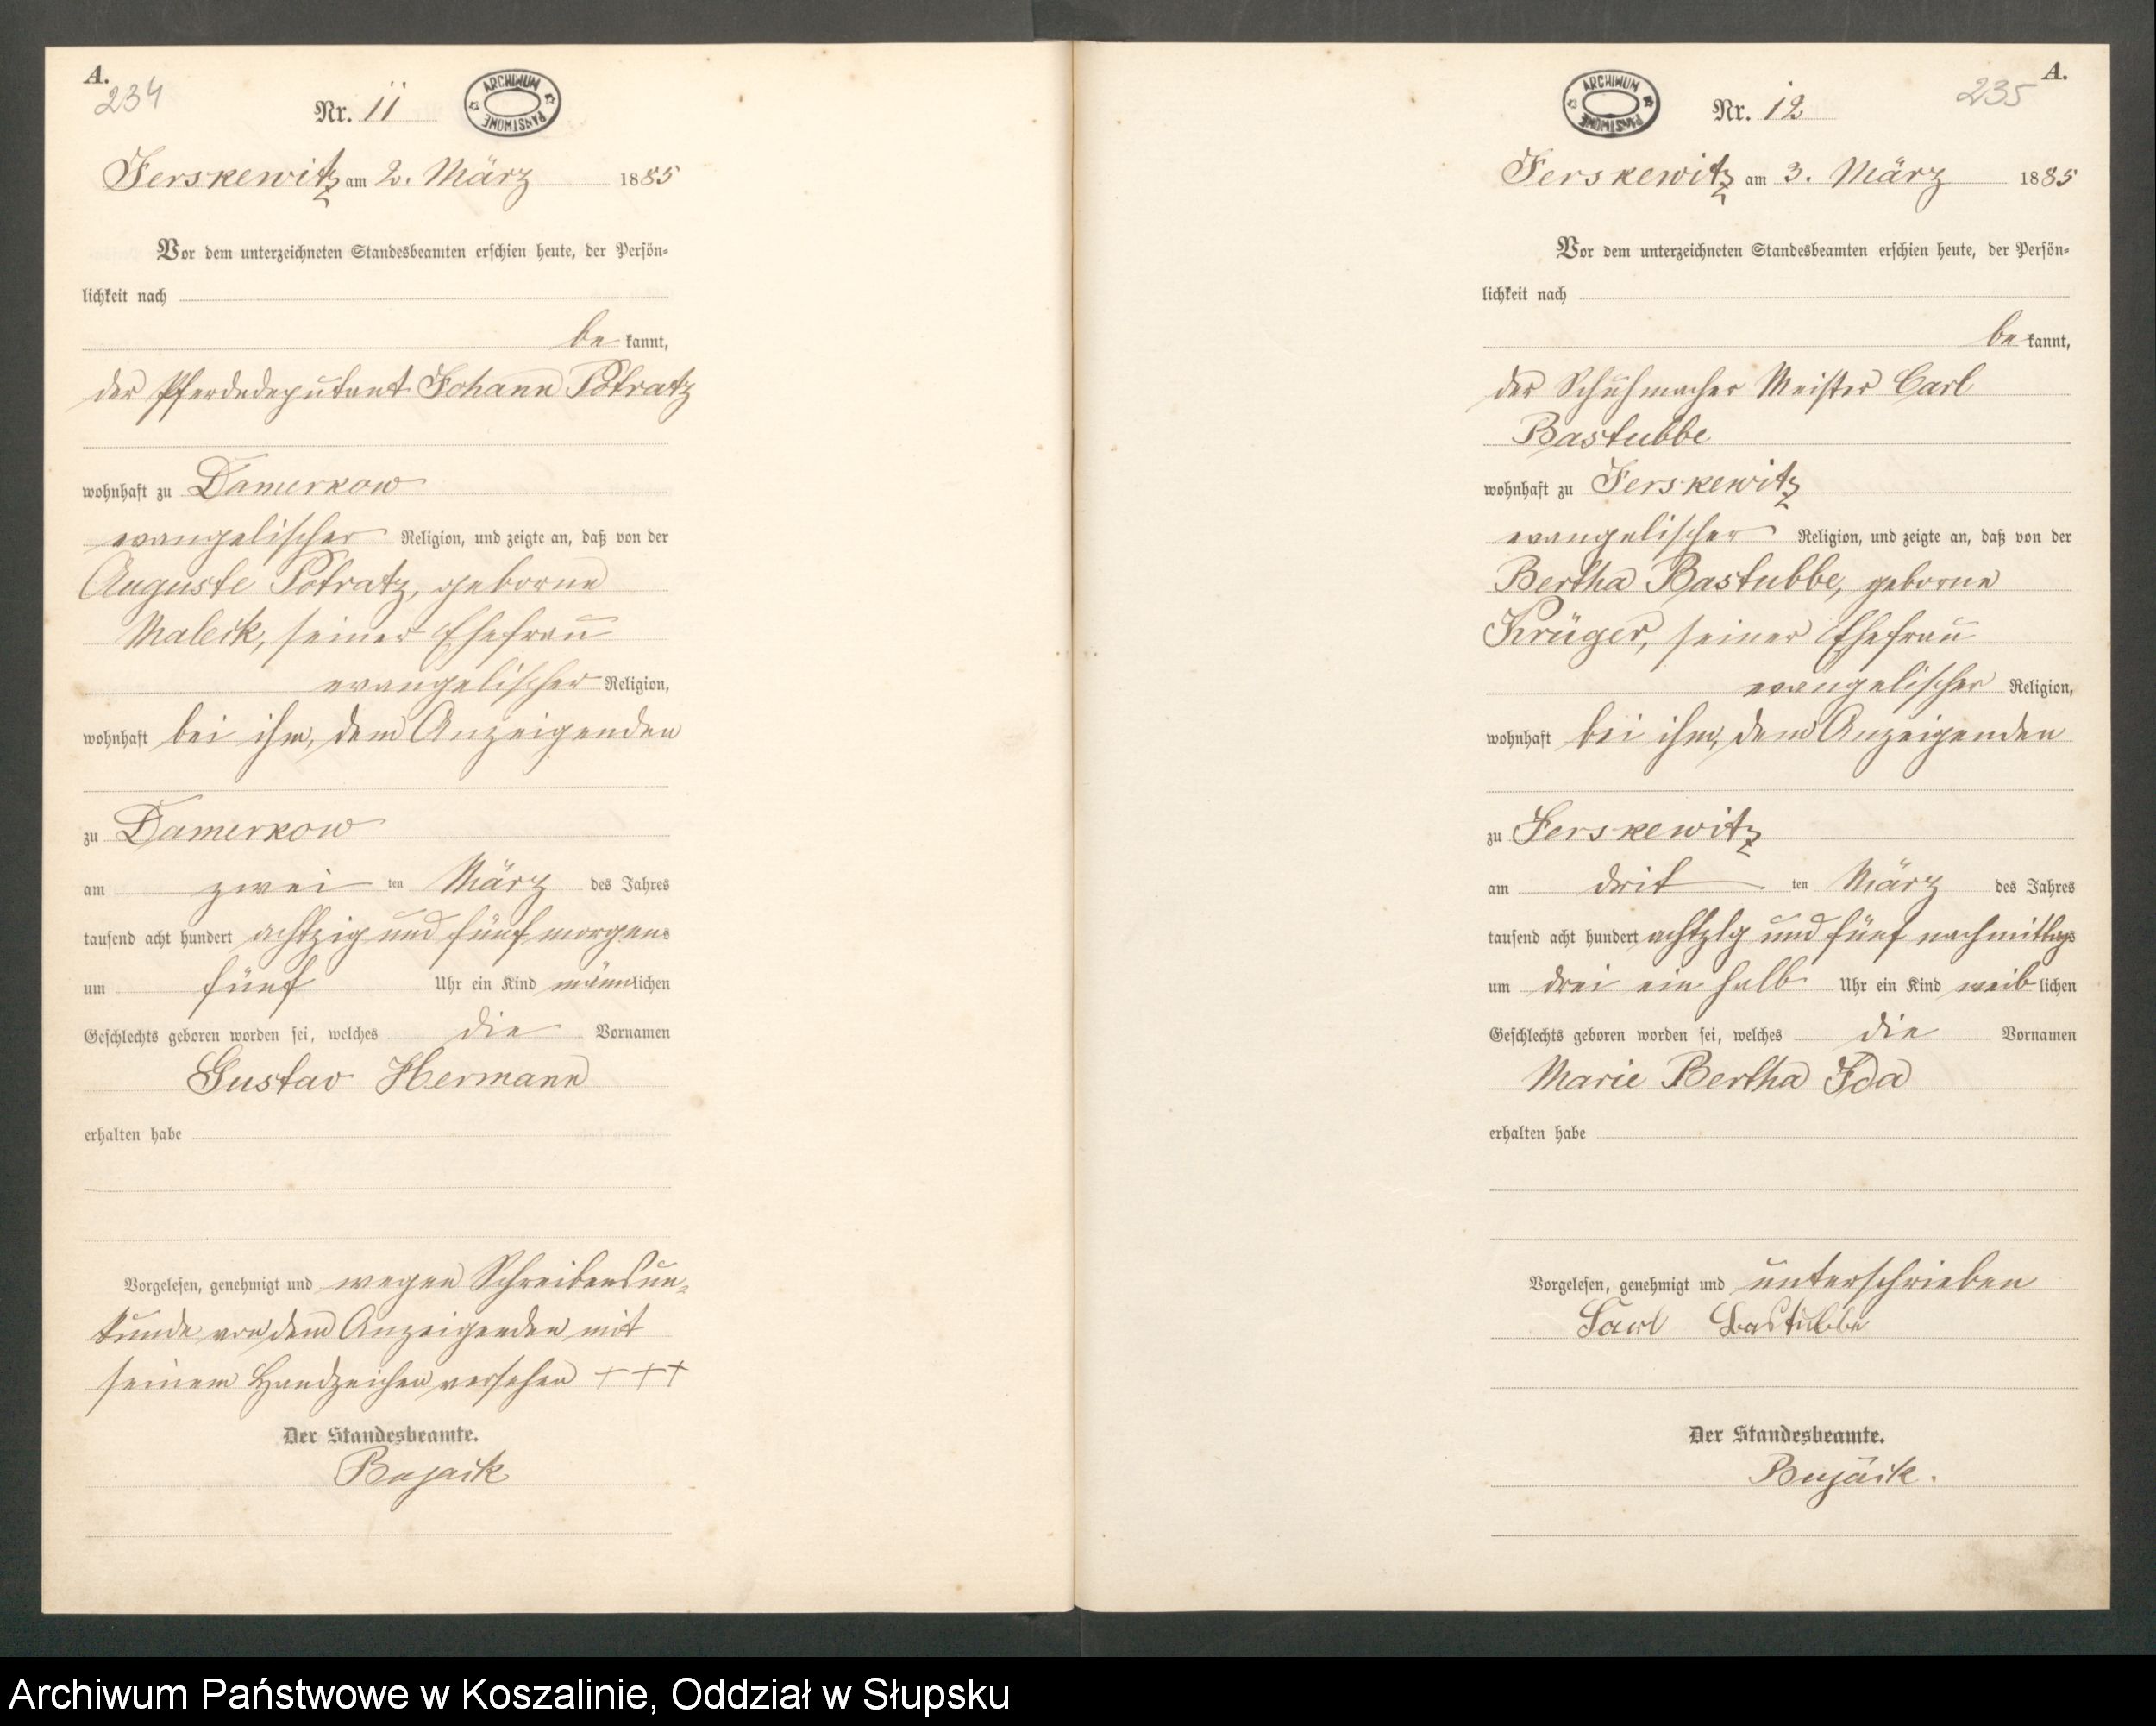 A.
234
Nr. 11
ARCHIWUM PAŃSTWOWE
Jerskewitz am 2. März 1885
Vor dem unterzeichneten Standesbeamten erschien heute, der Persön-
lichkeit nach
be kannt,
der Pferdedeputant Johann Potratz
wohnhaft zu Damerkow
evangelischer Religion, und zeigte an, daß von der
Auguste Potratz, geborne
Maleck, seiner Ehefrau
evangelischer Religion,
wohnhaft bei ihm, dem Anzeigenden
zu Damerkow
am zwei ten März des Jahres
tausend acht hundert achtzig und fünf morgens
um fünf Uhr ein Kind männlichen
Geschlechts geboren worden sei, welches die Vornamen
Gustav Hermann
erhalten habe
Vorgelesen, genehmigt und wegen Schreibensun-
kunde von dem Anzeigenden mit
seinem Handzeichen versehen +++
Der Standesbeamte.
Bujack
A.
235
Nr. 12
ARCHIWUM PAŃSTWOWE
Jerskewitz am 3. März 1885
Vor dem unterzeichneten Standesbeamten erschien heute, der Persön-
lichkeit nach
be kannt,
der Schuhmacher Meister Carl
Bastubbe
wohnhaft zu Jerskewitz
evangelischer Religion, und zeigte an, daß von der
Bertha Bastubbe, geborne
Krüger, seiner Ehefrau
evangelischer Religion,
wohnhaft bei ihm, dem Anzeigenden
zu Jerskewitz
am drit ten März des Jahres
tausend acht hundert achtzig und fünf nachmittags
um drei ein halb Uhr ein Kind weib lichen
Geschlechts geboren worden sei, welches die Vornamen
Marie Bertha Ida
erhalten habe
Vorgelesen, genehmigt und unterschrieben
Carl Bastubbe
Der Standesbeamte.
Bujack.
Archiwum Państwowe w Koszalinie, Oddział w Słupsku